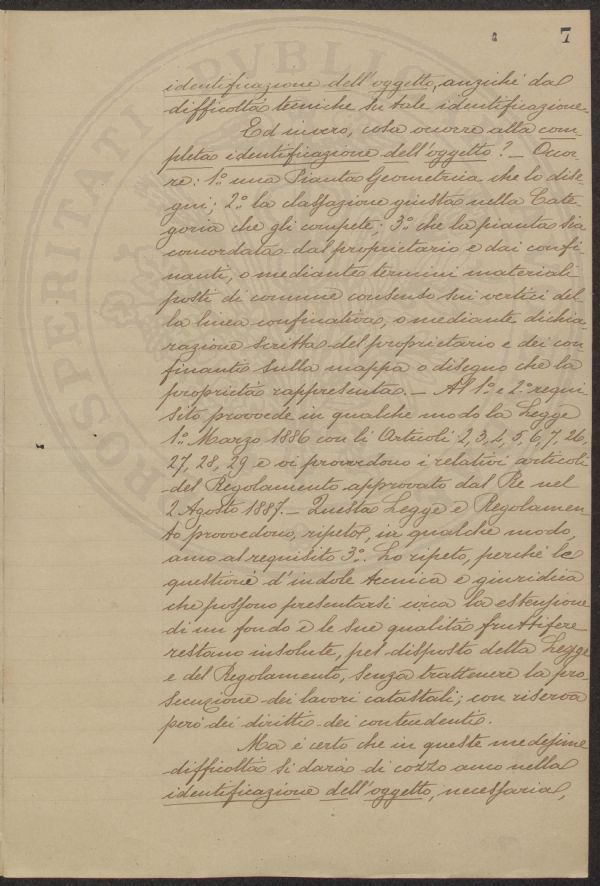 7
identificazione dell'oggetto, anziché dal
difficoltà tecniche su tale identificazione.
Ed invero, cosa occorre alla com-
pleta identificazione dell'oggetto? — Occor-
re: 1.º una Pianta Geometrica che lo dise-
gni; 2.º la classazione giusta nella Cate-
goria che gli compete; 3.º che la pianta sia
concordata dal proprietario e dai confi-
nanti, o mediante termini materiali
posti di comune consenso sui vertici del
la linea confinativa, o mediante dichia-
razione scritta del proprietario e dei con
finanti sulla mappa o disegno che la
proprietà rappresenta. — Al 1.º e 2.º requi
sito provvede in qualche modo la Legge
1.º Marzo 1886 con li Articoli 2, 3, 4, 5, 6, 7, 26,
27, 28, 29 e vi provvedono i relativi articoli
del Regolamento approvato dal Re nel
2 Agosto 1887. — Questa Legge e Regolamen-
to provvedono, ripeto, in qualche modo,
anco al requisito 3.º. Lo ripeto, perché le
questioni d'indole tecnica e giuridica
che possono presentarsi circa la estensione
di un fondo e le sue qualità fruttifere
restano insolute, pel disposto della Legge
e del Regolamento, senza trattenere la pro-
secuzione dei lavori catastali; con riserva
però dei diritti dei contendenti.
Ma è certo che in queste medesime
difficoltà si darà di cozzo anco nella
identificazione dell'oggetto, necessaria,
PROSPERITATI PVBLICAE